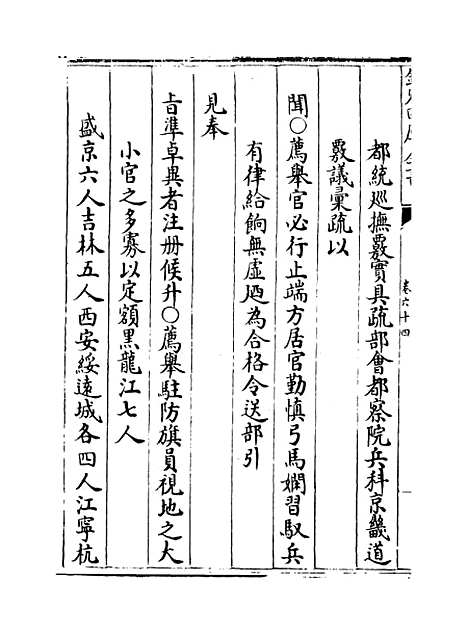 欽定四庫全書
卷六十四
都統巡撫覈實具疏部會都察院兵科京畿道
覈議彙疏以
聞○薦舉官必行止端方居官勤慎弓馬嫻習馭兵
有律給餉無虛廼為合格令送部引
見奉
㫖準卓異者注册候升○薦舉駐防旗員視地之大
小官之多寡以定額黑龍江七人
盛京六人吉林五人西安綏遠城各四人江寧杭